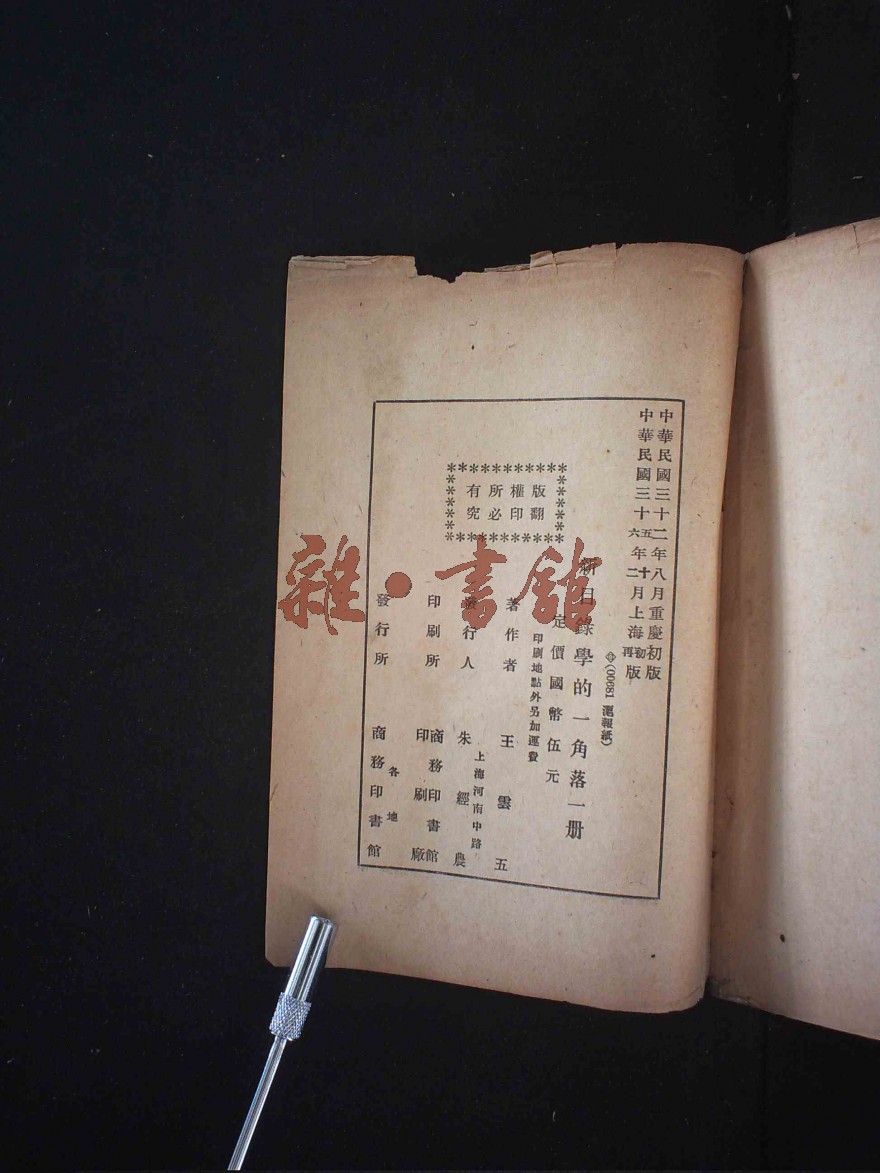 中華民國三十二年八月重慶初版
中華民國三十五年十月上海初版
六 二 再
⊕(00681 滬報紙)
新目錄學的一角落一册
定價國幣伍元
印刷地點外另加運費
版權所有
翻印必究
著作者 王雲五
發行人 朱經農
上海河南中路
印刷所 商務印書館
印刷廠
發行所 商務印書館
各地
雜·書館